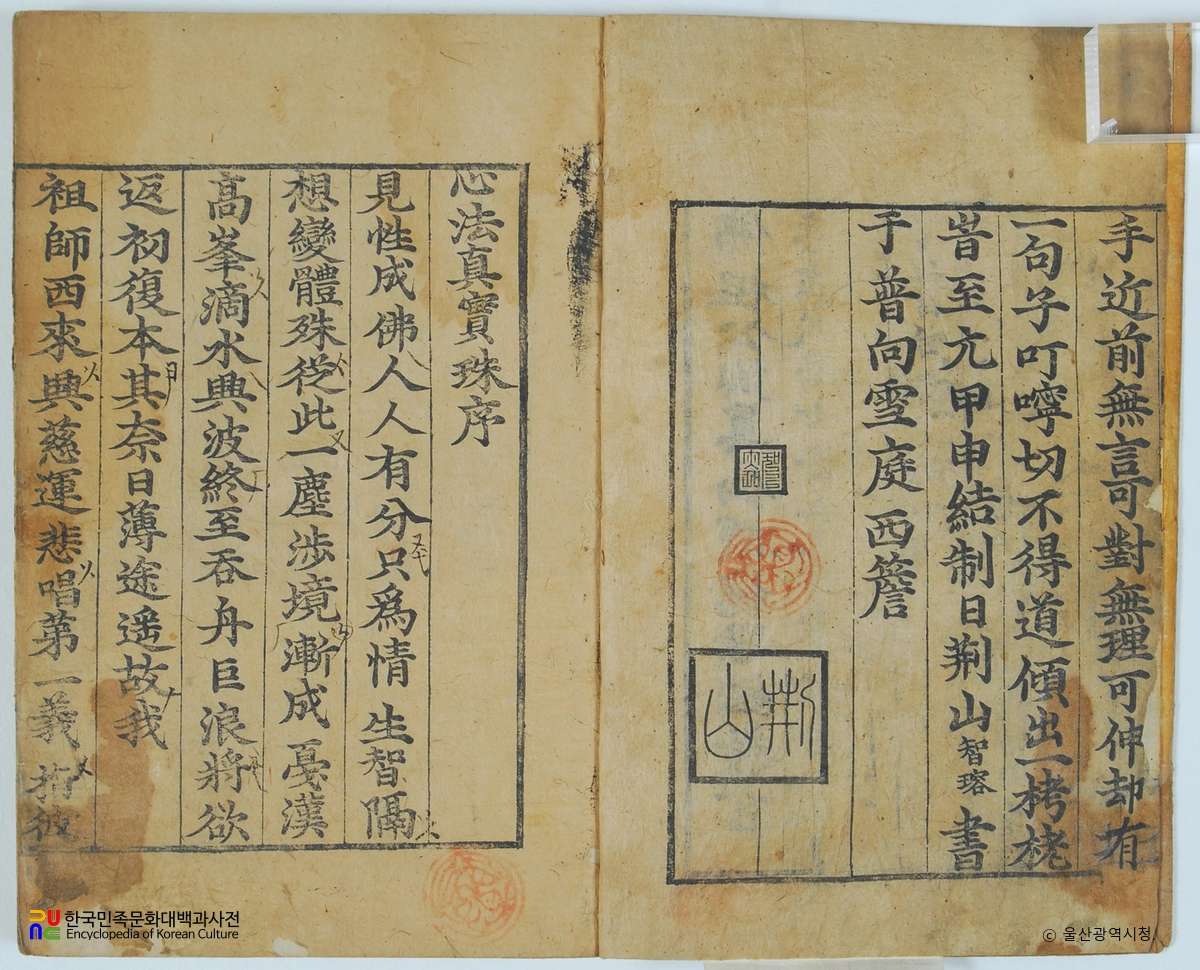 手近前無言可對無理可伸却有
一句子叮嚀切不得道傾出一栲栳
昔至亢甲申結制日荊山智瑢書
于普向雪庭西簷
荊山
心法真實珠序
見性成佛人人有分只爲情生智隔
想變體殊從此一塵涉境漸成憂漢
高峯滴水興波終至吞舟巨浪將欲
返初復本其奈日薄途遥故我
祖師西來興慈運悲唱第一義指彼
한국민족문화대백과사전
Encyclopedia of Korean Culture
© 울산광역시청